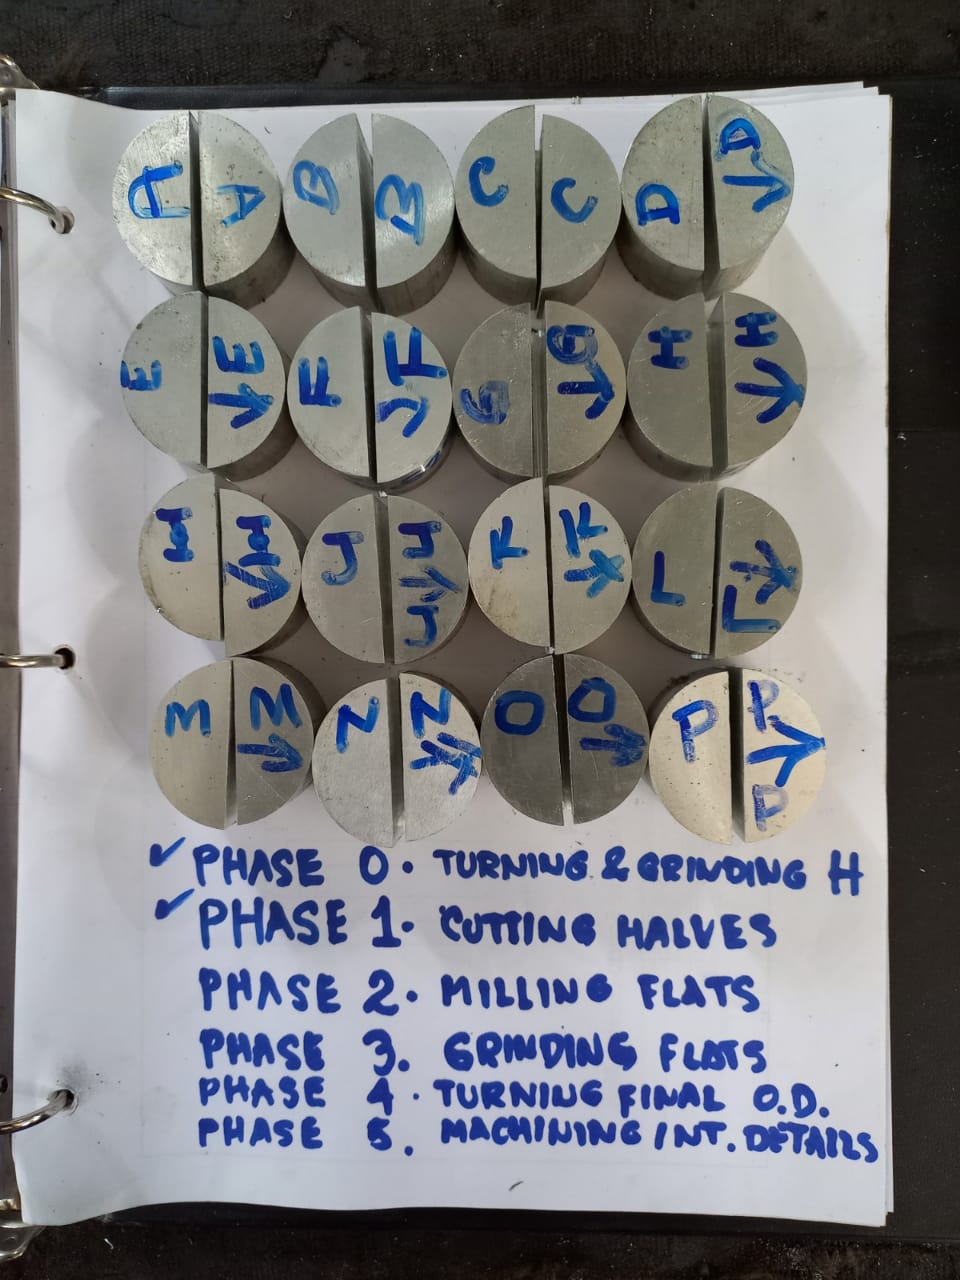 A A B B C C D D
E E F F G G H H
I I J J K K L L
M M N N O O P P
P
✓ PHASE 0. TURNING & GRINDING H
✓ PHASE 1. CUTTING HALVES
PHASE 2. MILLING FLATS
PHASE 3. GRINDING FLATS
PHASE 4. TURNING FINAL O.D.
PHASE 5. MACHINING INT. DETAILS